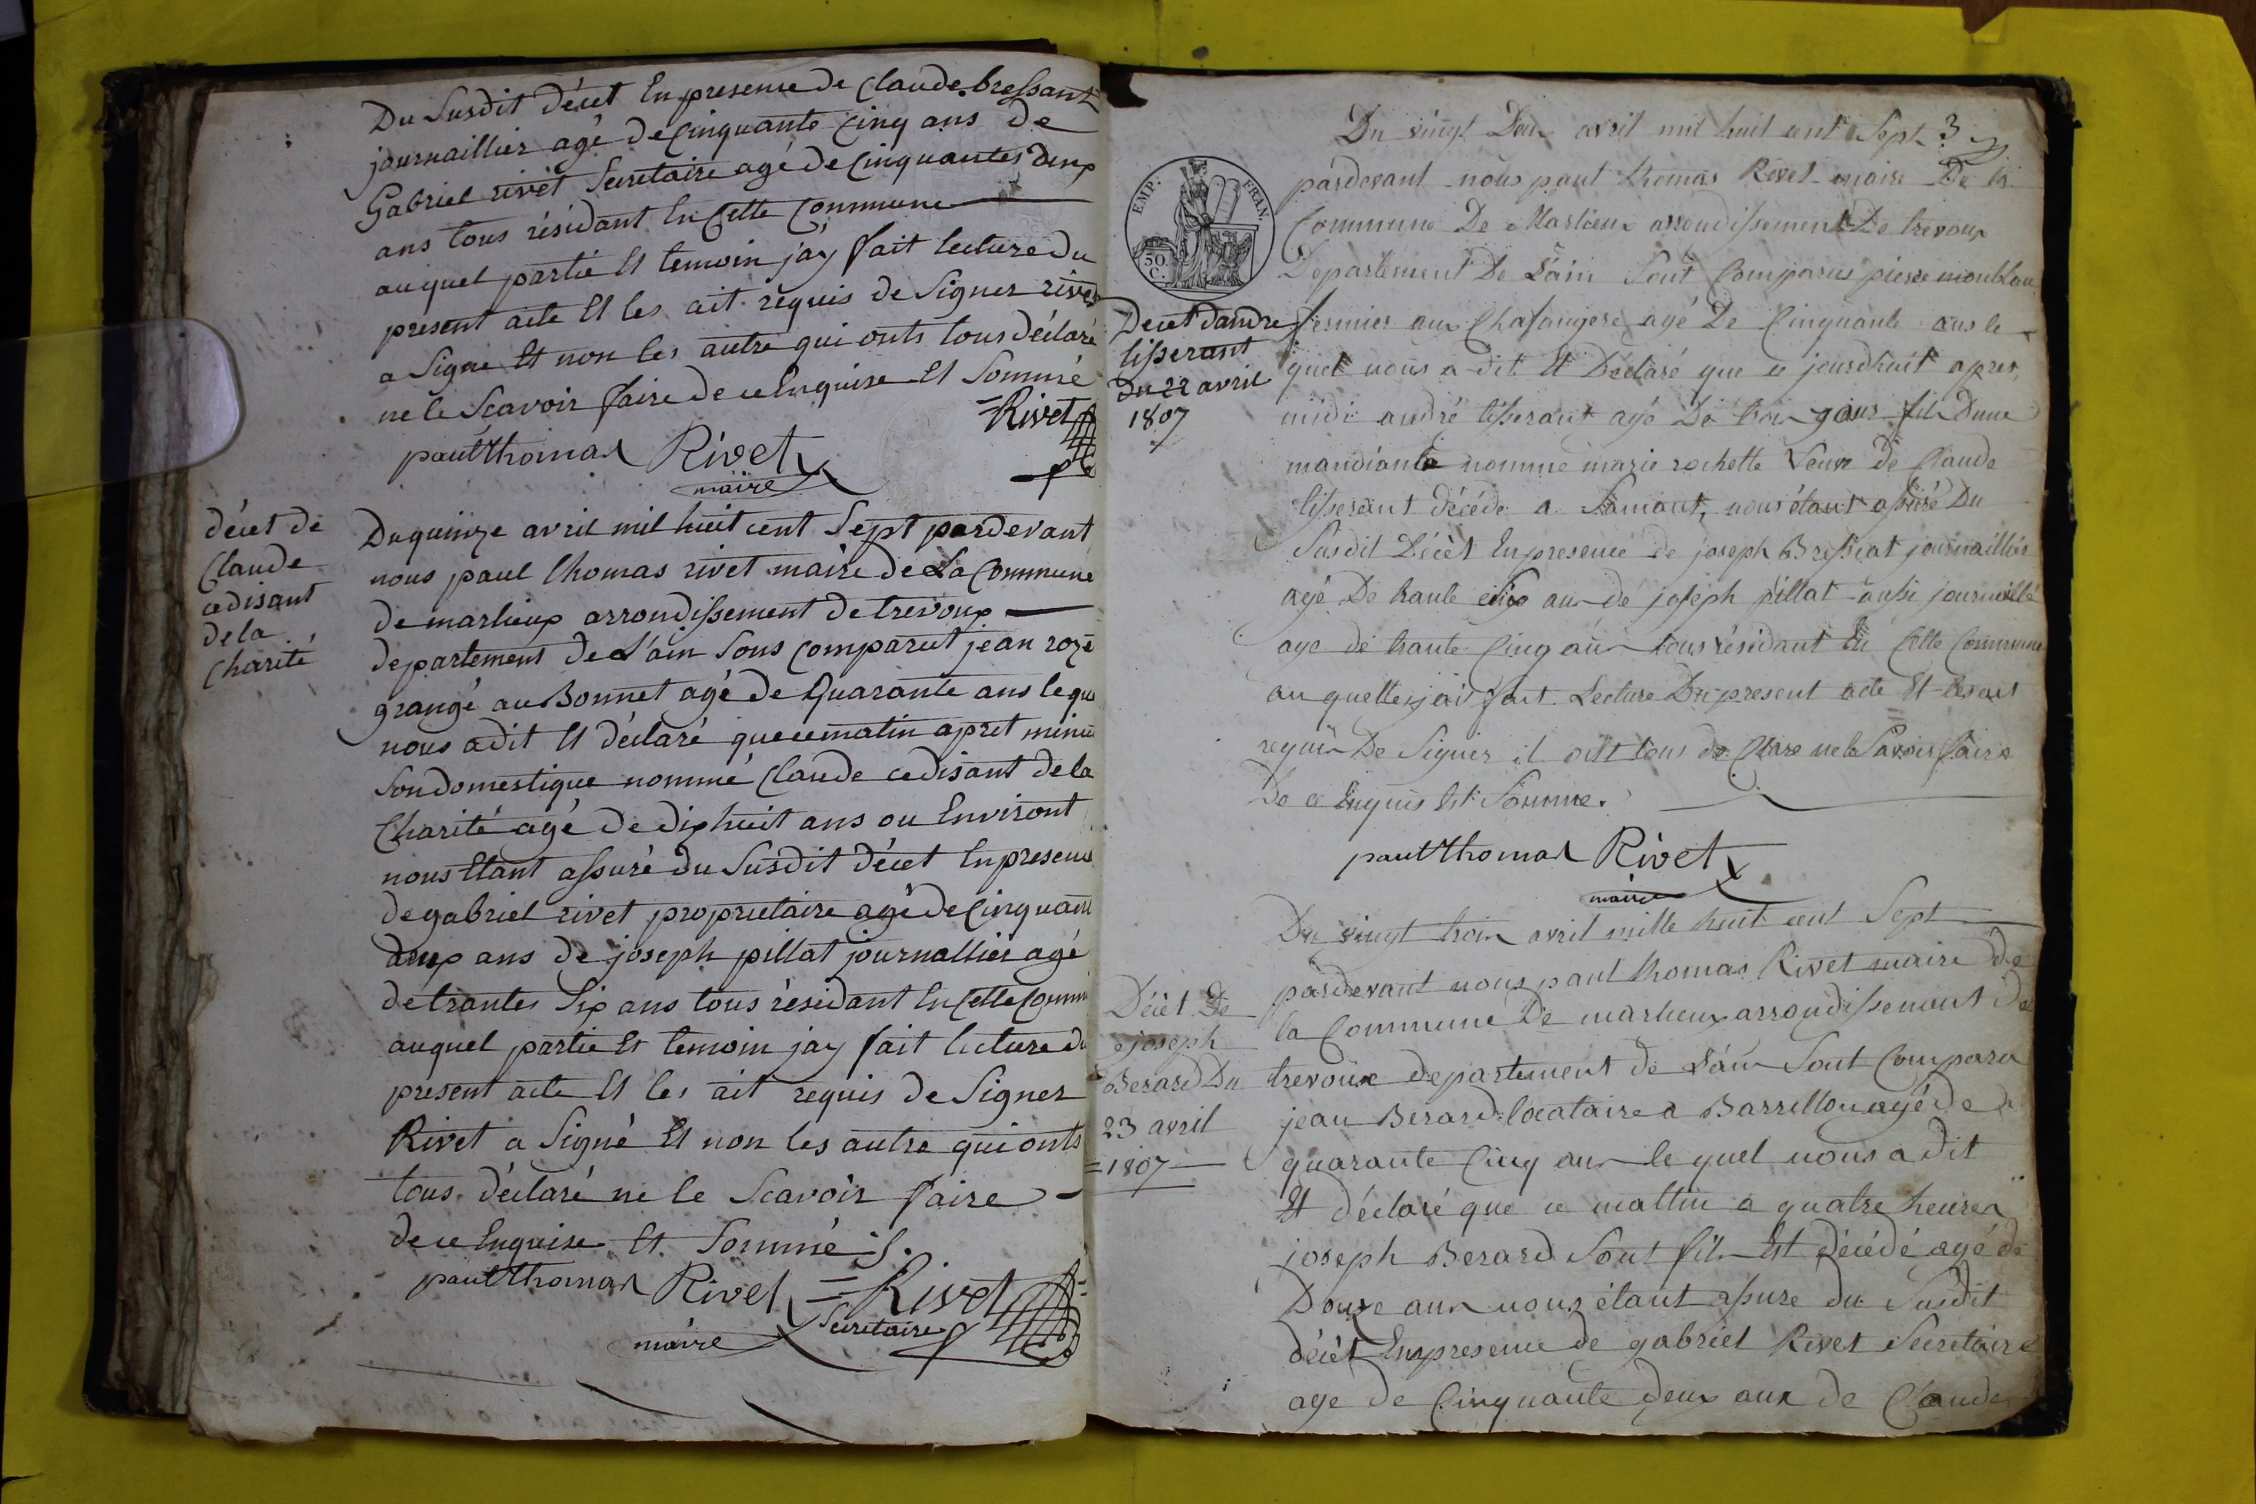 Du Susdit décet En presence de Claude bressant
journaillier agé de Cinquante Cinq ans de
Gabriel rivet Secretaire agé de Cinquantes deux
ans tous résidant En Cette Commune
au quel partie Et temoin j'ay fait lecture du
present acte Et les ait requis de Signer rivet
a Signe Et non les autre qui onts tous déclaré
ne le Scavoir faire de ce Enquise Et Sommé
=Rivet
paul thomas Rivet
maire
décet de
Claude
cedisant
de la
Charité
Du quinze avril mil huit cent Sept pardevant
nous paul thomas rivet maire de La Commune
de marlieux arrondissement de trevoux
departement de L'ain Sons Comparut jean rozé
grangé au Bonnet agé de Quarante ans lequ
nous a dit Et déclaré que ce matin apret minui
Son domestique nommé Claude cedisant de la
Charité agé de dix huit ans ou Environt
nous Etant assuré du Susdit décet En presence
de gabriel rivet proprietaire agé de Cinquant
deux ans de joseph pillat journallier agé
de trantes Six ans tous résidant En Cette Comm
auquel partie Et temoin jay fait lecture du
present acte Et les ait requis de Signer
Rivet a Signé Et non les autre qui onts
tous déclaré ne le Scavoir faire
de ce Enquise Et Sommé
paul thomas Rivet = Rivet
maire Secretaire
Du vingt Deux avril mil huit cent Sept 3
EMP. FRAN.
50 C.
pardevant nous paul thomas Rivet maire De la
Commune De Marlieux arrondissement De trevoux
Departement De L'ain Sont Comparus pierre monblan
Decet dandre
tisserant
du 22 avril
1807
fermier aux Chasangere agé De Cinquante ans le
quel nous a dit Et Déclaré que ce jourdhuit apres
midi andré tisserant agé De trois jours fils Dune
mandiante nomme marie rochette Veuve de Claude
tisserant décédé a nous étant assuré Du
Susdit Décèt En presence de joseph Bressiat journaillier
agé De trante ans dé joseph pillat aussi journaillé
age de trante Cinq ans tous résidant En Cette Commune
au quelles jait fait Lecture Du present acte Et
requis De Signer il ont tous de Clare ne le Savoir faire
De ce Enquis Et Somme.
paul thomas Rivet
maire
Du vingt trois avril mille huit cent Sept
pardevant nous paul thomas Rivet maire de
la Commune De marlieux arrondissement de
trevoux departement de L'ain Sont Comparu
Décèt De
joseph
Berard Du
23 avril
=1807
jean Berard locataire a Barrillon agé de
quarante Cinq ans le quel nous a dit
Et déclaré que ce mattin a quatre heures
joseph Berard Sont fils Est décédé agé de
Douze ans nous étant assure du Susdit
décèt En presence de gabriel Rivet Secretaire
agé de Cinquante deux ans de Claude